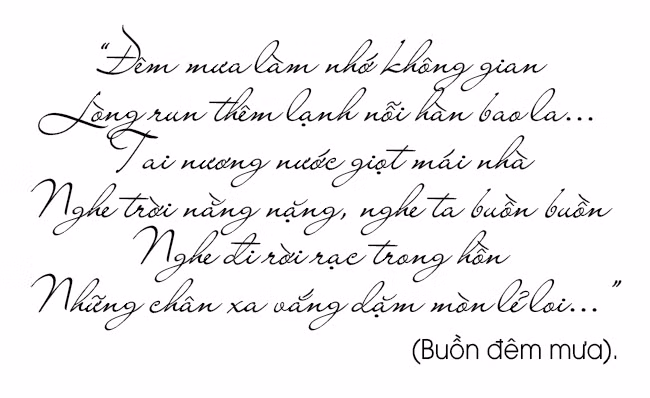 “Đêm mưa làm nhớ không gian
Lòng run thêm lạnh nỗi hàn bao la...
Tai nương nước giọt mái nhà
Nghe trời nằng nặng, nghe ta buồn buồn
Nghe đi rời rạc trong hồn
Những chân xa vắng dặm mòn lẻ loi...”
(Buồn đêm mưa).